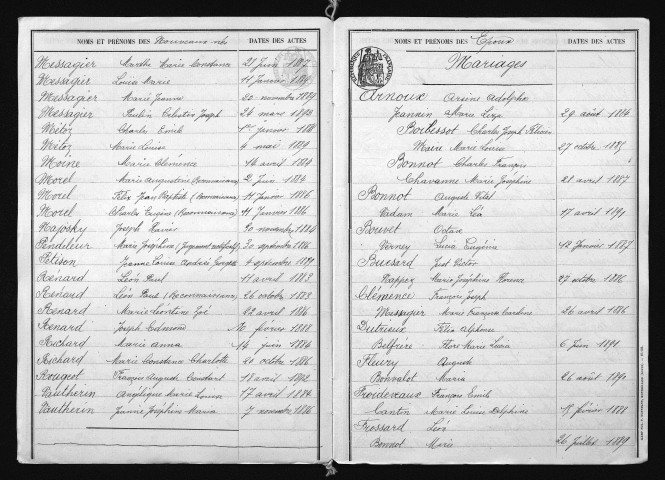 NOMS ET PRÉNOMS DES Nouveaux nés DATES DES ACTES
Messagier Marthe Marie Constance 21 Juin
Messagier Louisa Marie 11 Janvier
Messagier Marie Jeanne 20 novembre 1889
Messagier Paulin Célestin Joseph 24 mars 1892
Métoz Charles Emile 1er janvier
Métoz Marie Louise 4 mai
Moine Marie Clémence 14 avril 1884
Morel Marie Augustine (Reconnaissance) 2 Juin 1884
Morel Félix Jean Baptiste (Reconnaissance) 11 Janvier 1886
Morel Charles Eugène (Reconnaissance) 11 Janvier 1886
Joseph Xavier 20 novembre 1884
Marie Joséphine (Jugement rectificatif) 30 septembre 1886
Jeanne Louise Andrée Georgette 4 septembre 1891
Renard Léon Paul 11 avril 1883
Renard Léon Paul (Reconnaissance) 26 octobre 1883
Renard Marie Léontine Zoé avril 1886
Renard Joseph Edmond février 1888
Richard Marie Anna 14 juin 1884
Richard Marie Constance Charlotte 21 octobre 1886
François Auguste Constant 18 avril 1892
Vautherin Angélique Marie Louise 17 avril 1884
Vautherin Jeanne Joséphine Maria 7 novembre 1886
NOMS ET PRÉNOMS DES Epoux DATES DES ACTES
Mariages
Arnoux Arsène Adolphe
Jeannin Marie Liza 29 août 1884
Boibessot Charles Joseph Félicien
Maire Marie Louise 27 octobre 1885
Bonnot Charles François
Chavanne Marie Joséphine 21 avril 1887
Bonnot Auguste Vital
Marie Léa 17 avril 1891
Bouvet Octave
Verney Lucia Eugénie 12 Janvier 1887
Just Victor
Marie Joséphine Florence 27 octobre 1886
Clémence François Joseph
Messagier Marie Françoise Caroline 26 avril 1886
Dutrieux Félix Alphonse
Belfrère Flore Marie 6 Juin 1891
Fleury Auguste
Bonvalot Maria 26 août
Froidevaux François Emile
Cantin Marie Louise Delphine février 1888
Frossard Léon
Bonnot Marie 26 Juillet 1889